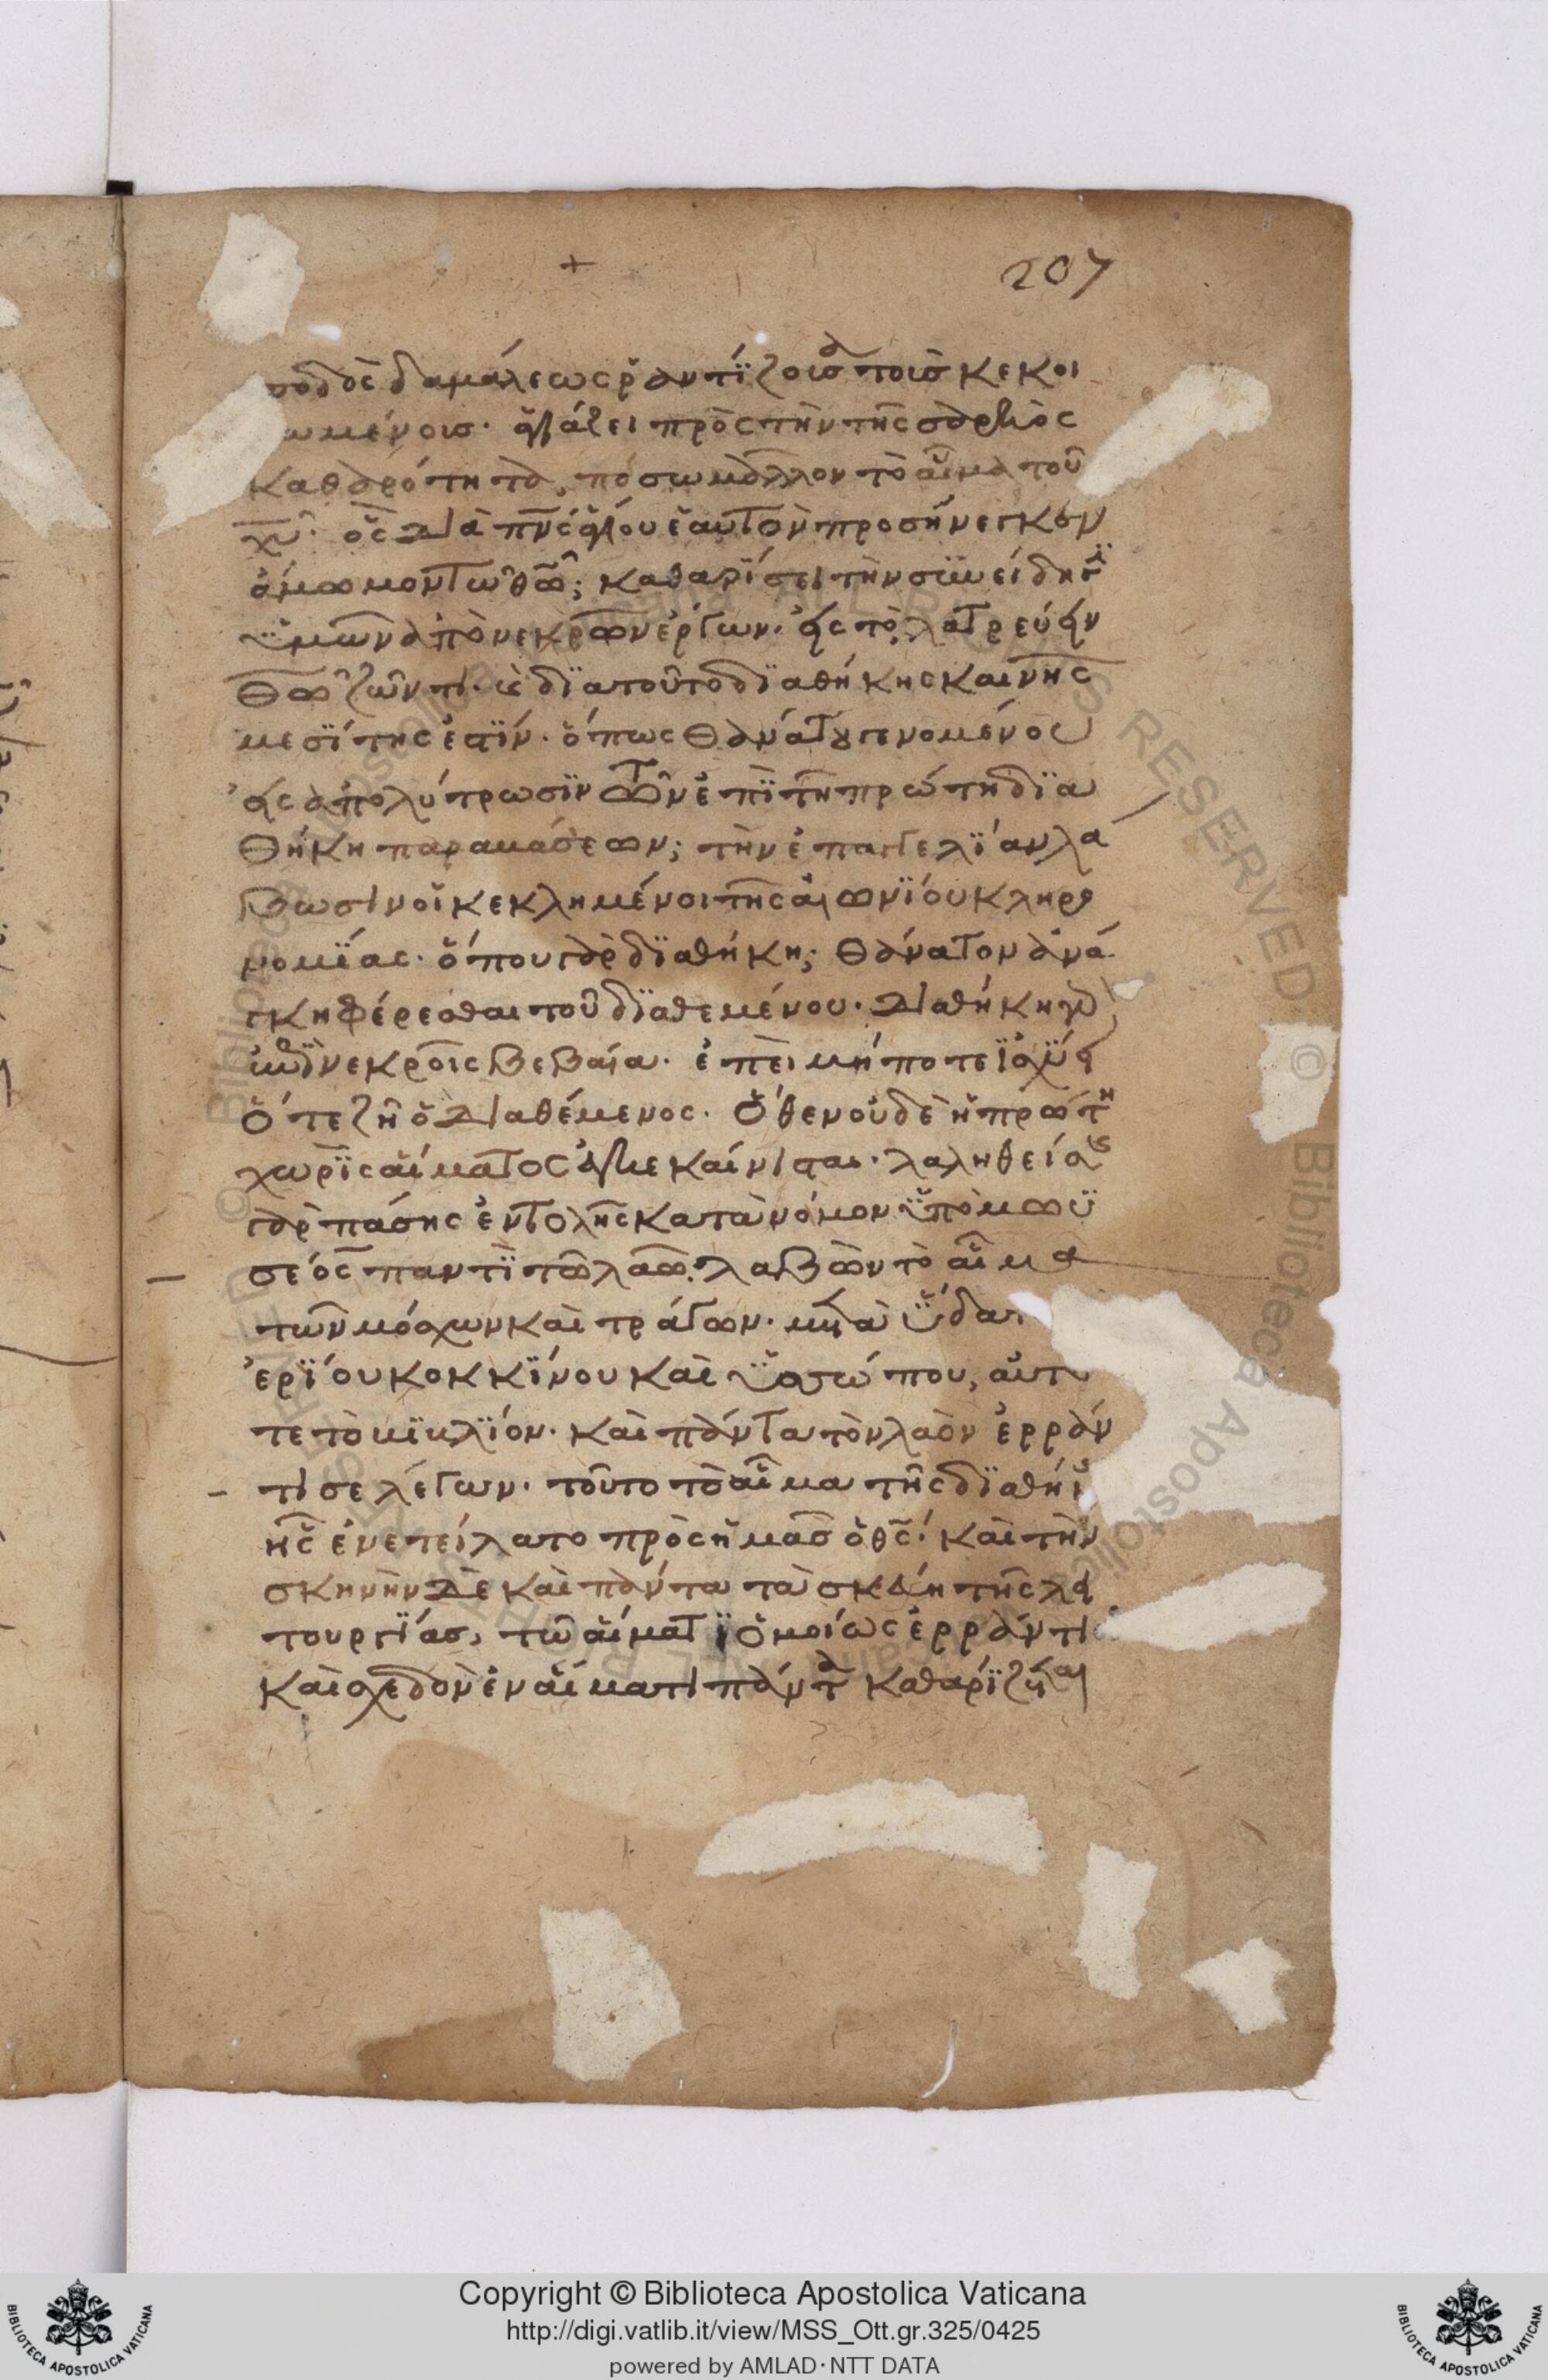 207
σποδὸς δαμάλεως ῥαντίζουσα τοὺς κεκοι
νωμένους. ἁγιάζει πρὸς τὴν τῆς σαρκὸς
καθαρότητα, πόσω μᾶλλον τὸ αἷμα τοῦ
χυ. ὃς διὰ πνς ἁγίου ἑαυτὸν προσήνεγκεν
ἄμωμον τῶ θῶ; καθαρίσει τὴν συνείδησϊ
ὑμῶν ἀπὸ νεκρῶν ἔργων. εἰς τὸ λατρεύειν
θῶ ζῶντι. καὶ διατοῦτο διαθήκης καινῆς
μεσίτης ἐστίν. ὅπως θανάτου γενομένου
εἰς ἀπολύτρωσιν τῶν ἐπὶ τῆ πρώτη δια
θήκη παραβάσεων; τὴν ἐπαγγελίαν λά
βωσιν οἱ κεκλημένοι τῆς αἰωνίου κληρο
νομίας. ὅπου γὰρ διαθήκη; θάνατον ἀνά
γκη φέρεσθαι τοῦ διαθεμένου. διαθήκη γὰρ
ἐπὶ νεκροῖς βεβαία. ἐπεὶ μήποτε ἰσχύει
ὅτε ζῆ ὁ διαθέμενος. ὅθεν οὐδὲ ἡ πρώτη
χωρὶς αἵματος ἐγκεκαίνισται. λαληθείσης
γὰρ πάσης ἐντολῆς κατὰ νόμον ὑπὸ μωϋ
σέος παντὶ τῶ λαῶ. λαβὼν τὸ αἷμα
τῶν μόσχων καὶ τράγων. μετὰ ὕδατ
ἐρίου κοκκίνου καὶ ὑσσώπου, αὐτο
τε τὸ βιβλίον. καὶ πάντα τὸν λαὸν ἐρράν
τισε λέγων. τοῦτο τὸ αἷμα τῆς διαθήκ
ἧς ἐνετείλατο πρὸς ἡμᾶς ὁ θς. καὶ τὴν
σκηνὴν δὲ καὶ πάντα τὰ σκεύη τῆς λει
τουργίας, τῶ αἵματι ὁμοίως ἐρράντι
καὶ σχεδὸν ἐν αἵματι πάντα καθαρίζεται
Copyright © Biblioteca Apostolica Vaticana
http://digi.vatlib.it/view/MSS_Ott.gr.325/0425
powered by AMLAD·NTT DATA